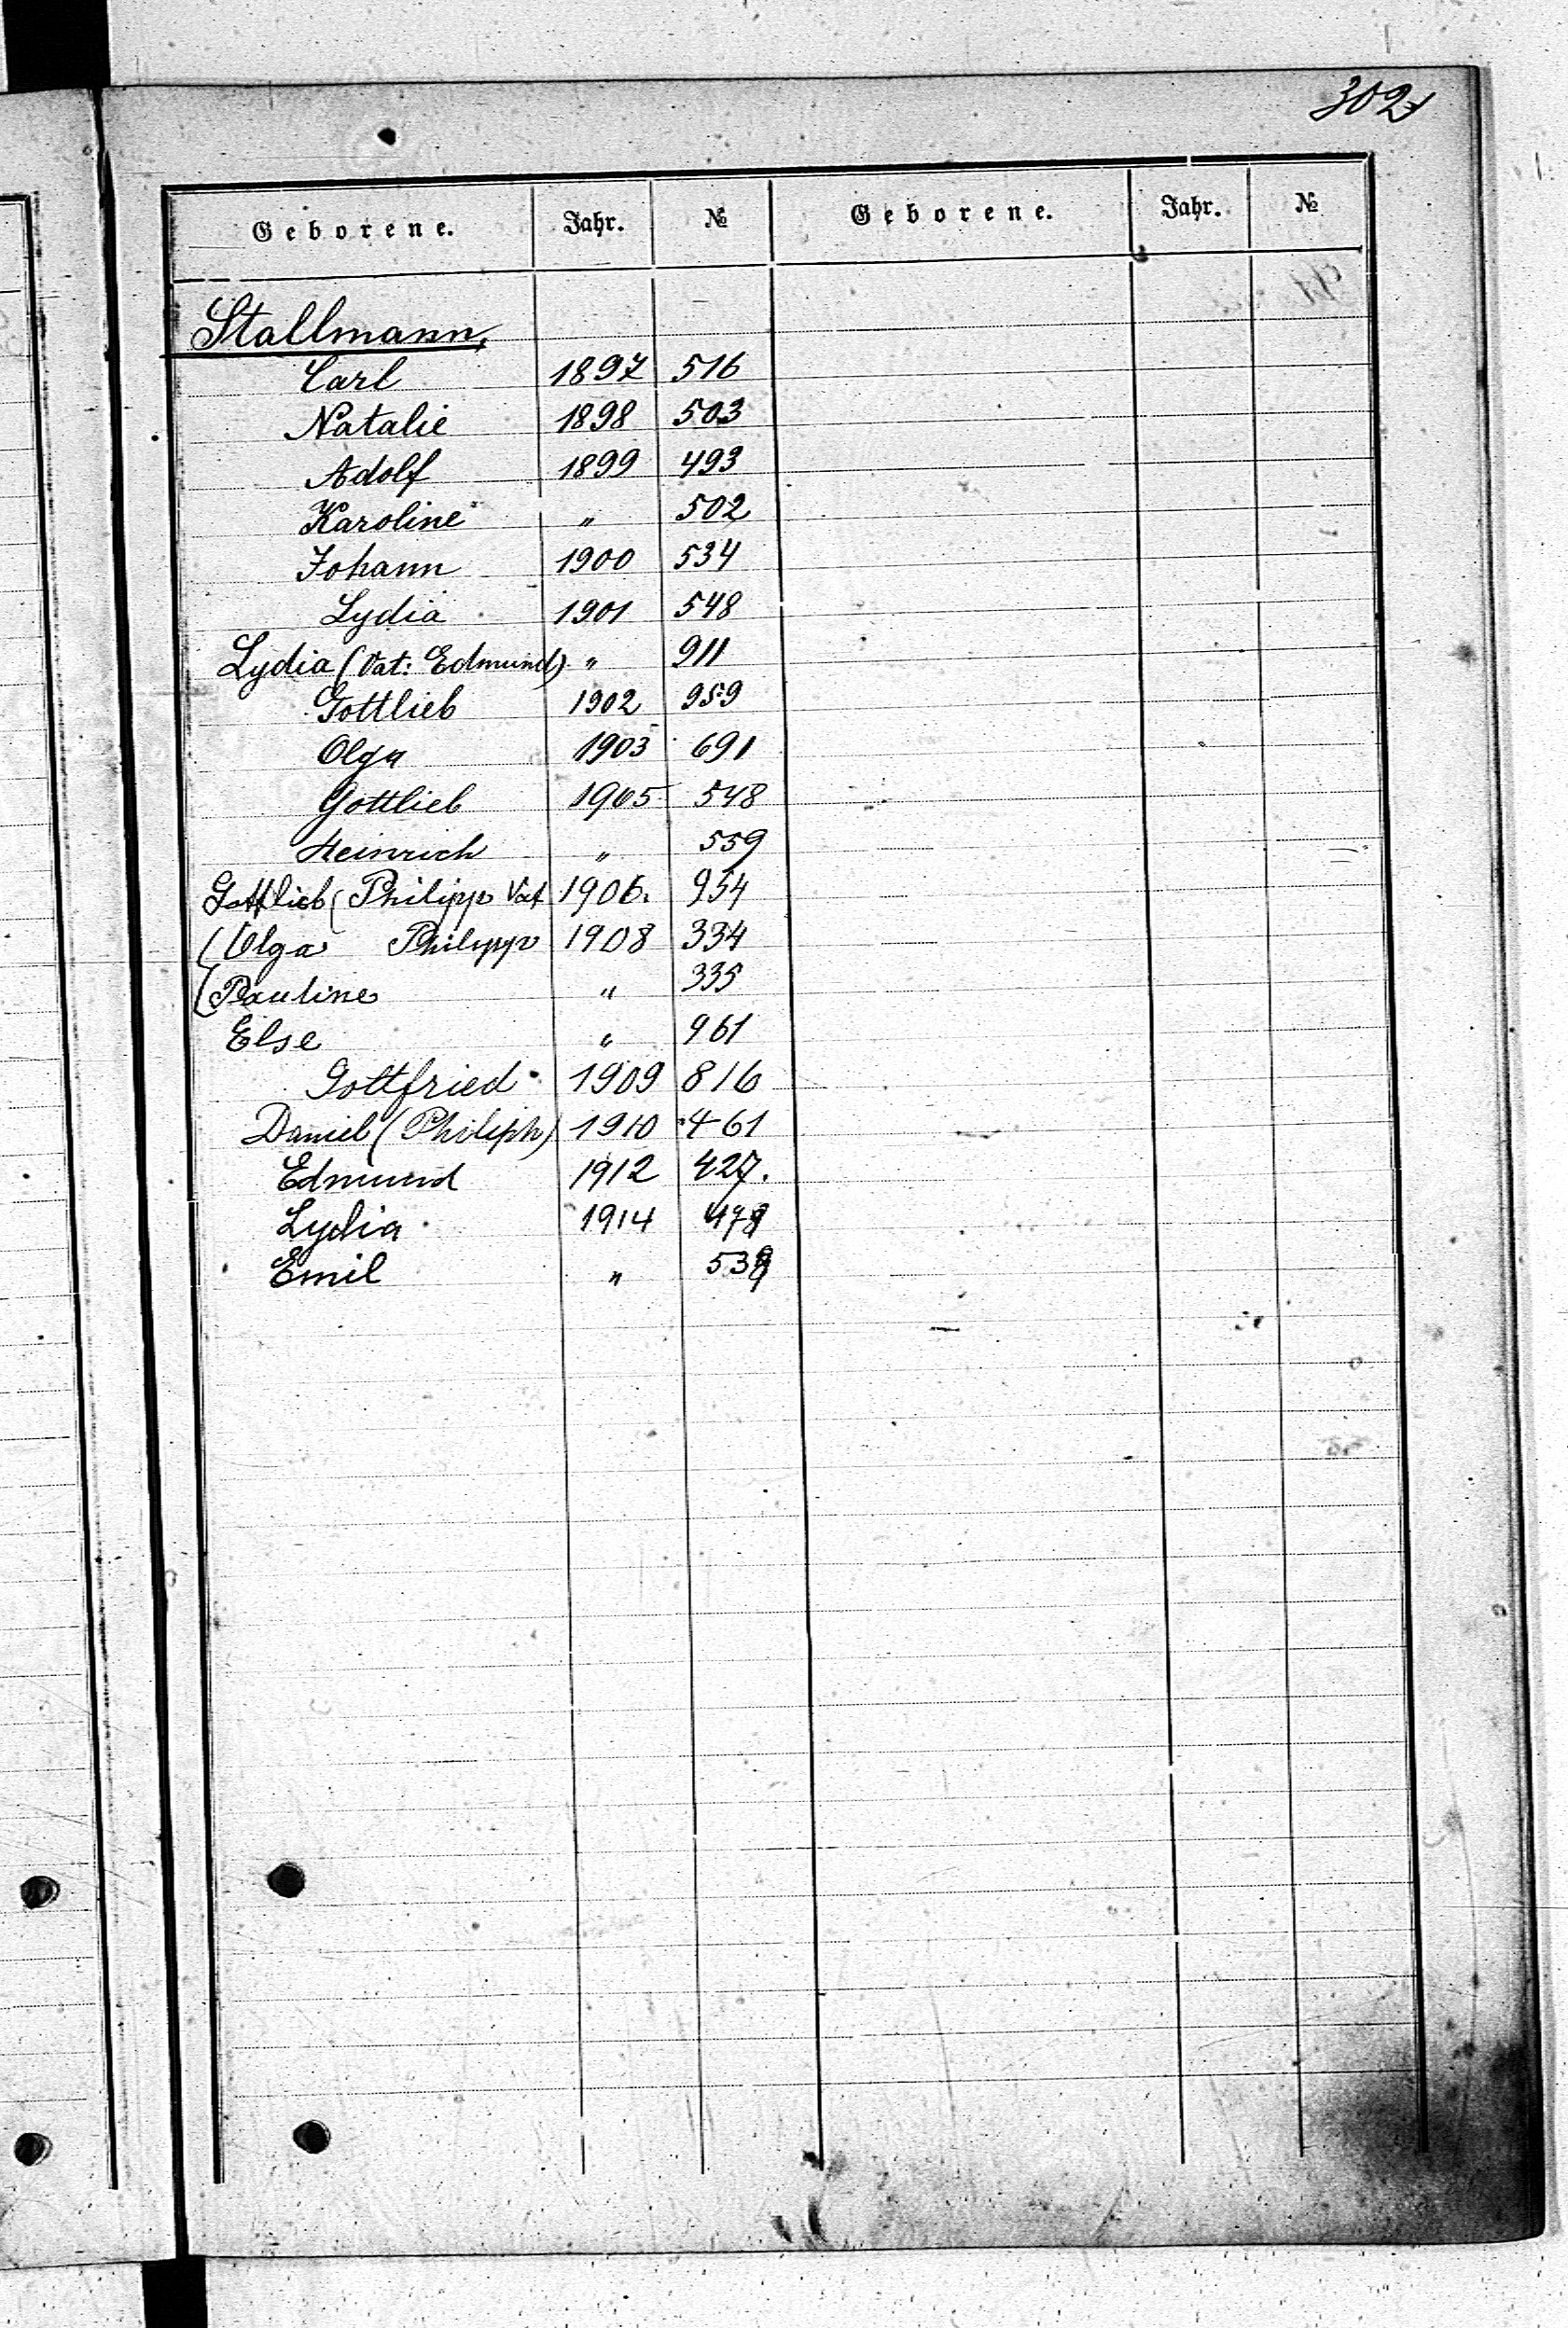 302
Geborene. Jahr. № Geborene. Jahr. №
Stallmann,
Carl 1897 516
Natalie 1898 503
Adolf 1899 493
Karoline " 502
Johann 1900 534
Lydia 1901 548
Lydia (Vat: Edmund) " 911
Gottlieb 1902 959
Olga 1903 691
Gottlieb 1905 548
Heinrich " 559
Gottlieb (Philipp Vat 1906. 954
(Olga Philipp 1908 334
(Pauline " 335
Else " 961
Gottfried 1909 816
Daniel (Philiph) 1910 461
Edmund 1912 427.
Lydia 1914
Emil "